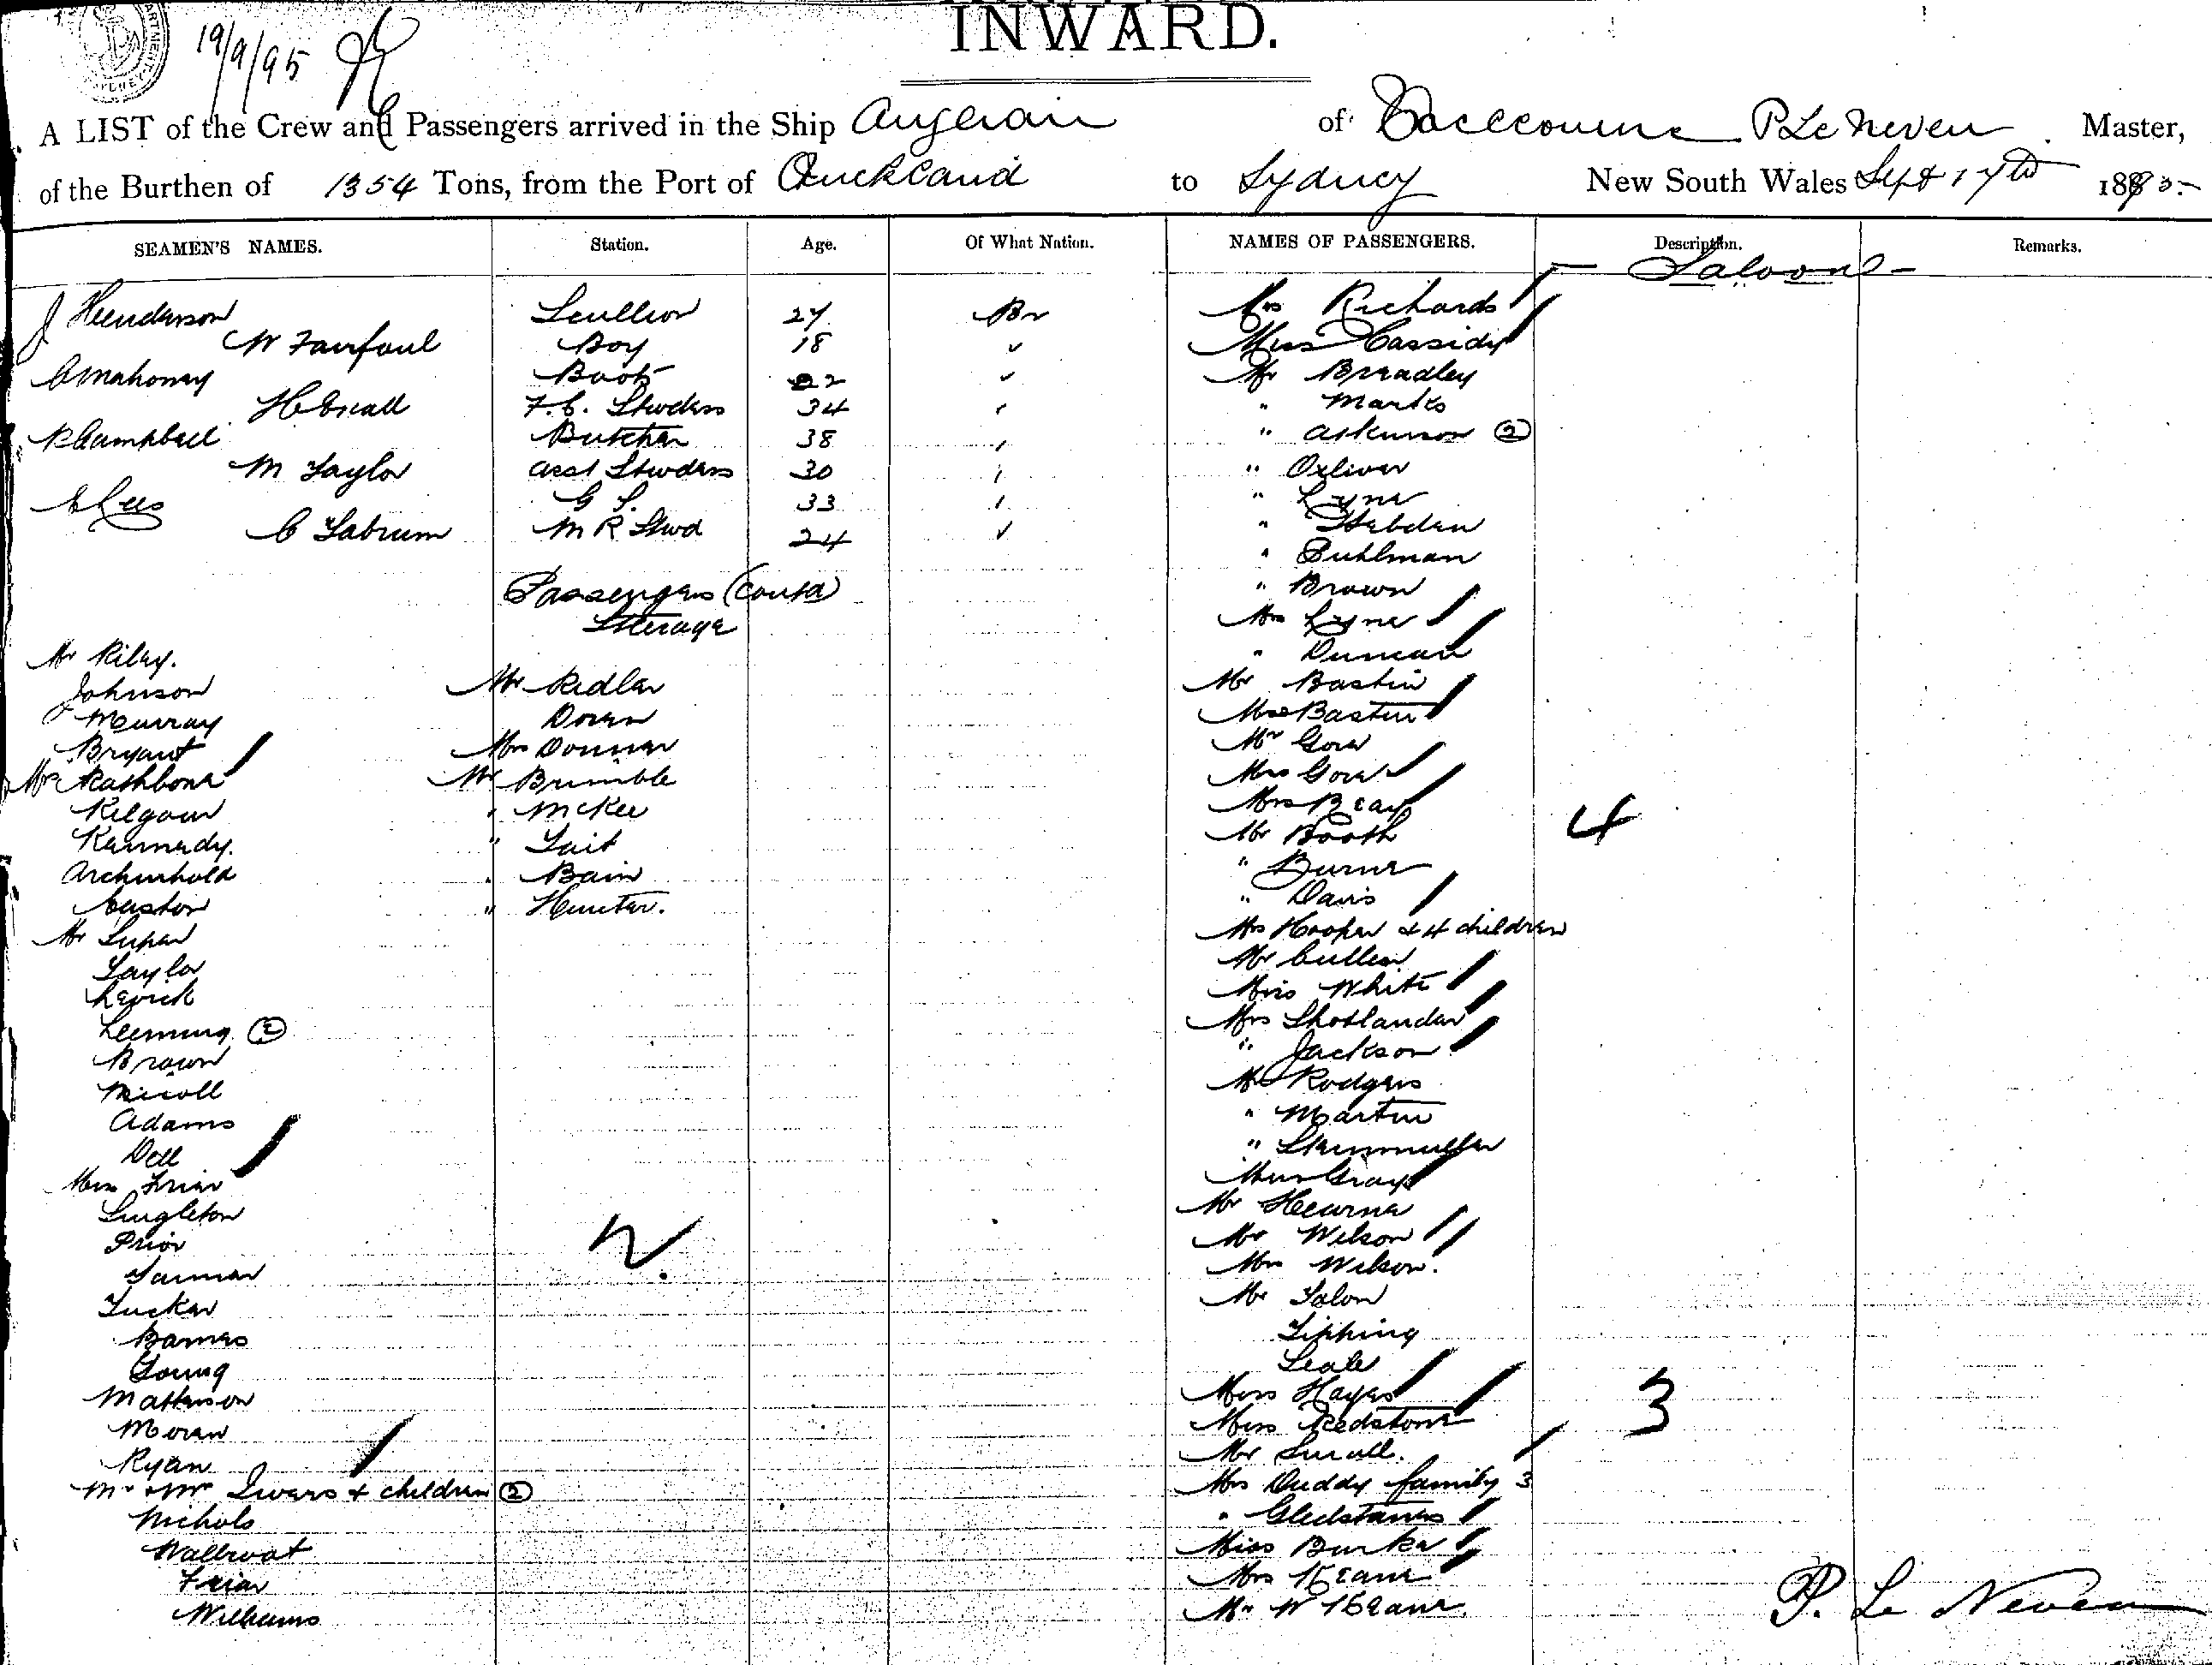 INWARD.
19/9/95
A LIST of the Crew and Passengers arrived in the Ship of P Le Neven Master,
of the Burthen of 1354 Tons, from the Port of Auckland to Sydney New South Wales Sept 17th 189
SEAMEN'S NAMES. Station. Age. Of What Nation. NAMES OF PASSENGERS. Description. Remarks.
Saloon
J Henderson Scullion 27 Br
W Fairfoul Boy 18 ✓
C Mahoney Boots 22 ✓
H Snall F.C. Stwdess 34
R Campbell Butcher 38
M Taylor Asst Stwdess 30
Lees G S. 33
C Tabrum M R Stwd 24 ✓
Passengers (Contd)
Steerage
Mr Riley.
Johnson
Murray
Bryant
Rathbone
Kilgour
Kennedy.
Archinbold
Castor
Mr Super
Taylor
Levick
Leeming (2)
Brown
Nicoll
Adams
Dell
Friar
Singleton
Prior
Tucker
Barnes
Young
Matheson
Moran
Ryan
Mr & Mrs Ivers & children (2)
Nichols
Wallroat
Friar
Williams
Mr Ridler
Doran
Mrs Donner
Mr Brimble
" McKee
" Tait
" Bain
" Hunter.
2
Richards
Miss Cassidy
Mr Bradley
" Marks
" Atkinson (2)
" Oxliver
" Lyne
" Hebden
" Buhlman
" Brown
Mrs Lyne
" Duncan
Mr Bastin
Bastin
Mr Gow
Mrs Gow
Mrs Bray
Mr Booth 4
" Burne
" Davis
Mrs Hooper & 4 children
Mr Cullen
Miss White
Mrs Shotlander
" Jackson
Mr Rodgers
" Martin
" Steinmuller
Miss Gray
Mr Hearne
Mr Wilson
Mrs Wilson.
Mr Tolon
Tipping
Seale
Miss Hayes
Miss Redstone 3
Mr Small.
Mrs Duddy family 3
" Gledstanes
Miss Burke
Mrs Keane
Mr W Keane
P. Le Neven